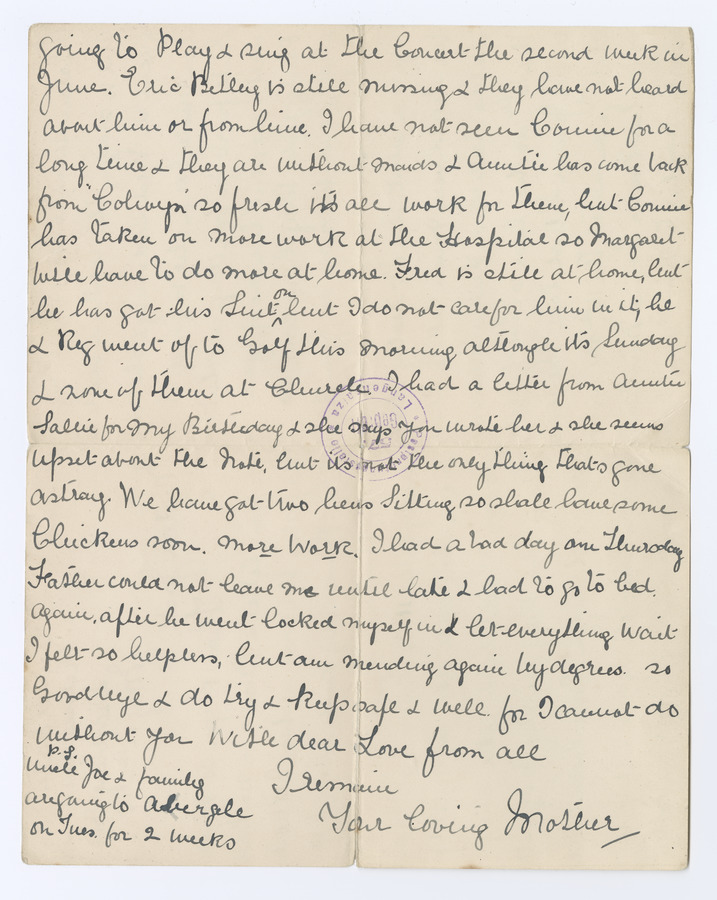 going to Play & sing at the Concert the second week in
June. Eric Betley is still missing & they have not heard
about him or from him. I have not seen Connie for a
long time & they are without maids & Auntie has come back
from "Colwyn" so fresh its all work for them, but Connie
has taken on more work at the Hospital so Margaret
will have to do more at home. Fred is still at home, but
he has got his Suit on but I do not care for him in it, he
& Reg went of to Golf this morning although its Sunday
& none of them at Church. I had a letter from Auntie
Sallie for my Birthday & she says you wrote her & she seems
upset about the Note, but its not the only thing thats gone
astray. We have got two hens Sitting so shall have some
Chickens soon. More Work. I had a bad day on Thursday
Father could not leave me until late & had to go to bed.
again, after he went locked myself in & let everything wait
I felt so helpless, but am mending again by degrees. so
Goodbye & do try & Keep safe & well. for I cannot do
without you With dear Love from all
I remain
Your loving Mother
P.S.
Uncle Joe & family
are going to Abergele
on Tues. for 2 weeks